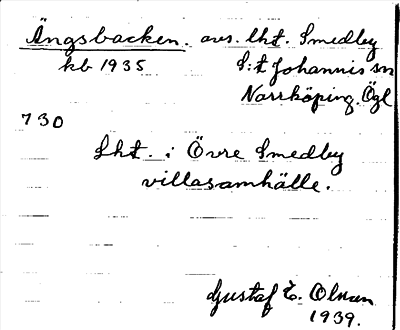 Ängsbacken. avs. lht. Smedby
kb 1935 S:t Johannis sn
Norrköping. Ögl
730
Lht. i Övre Smedby
villasamhälle.
Gustaf E. Olsson
1939.